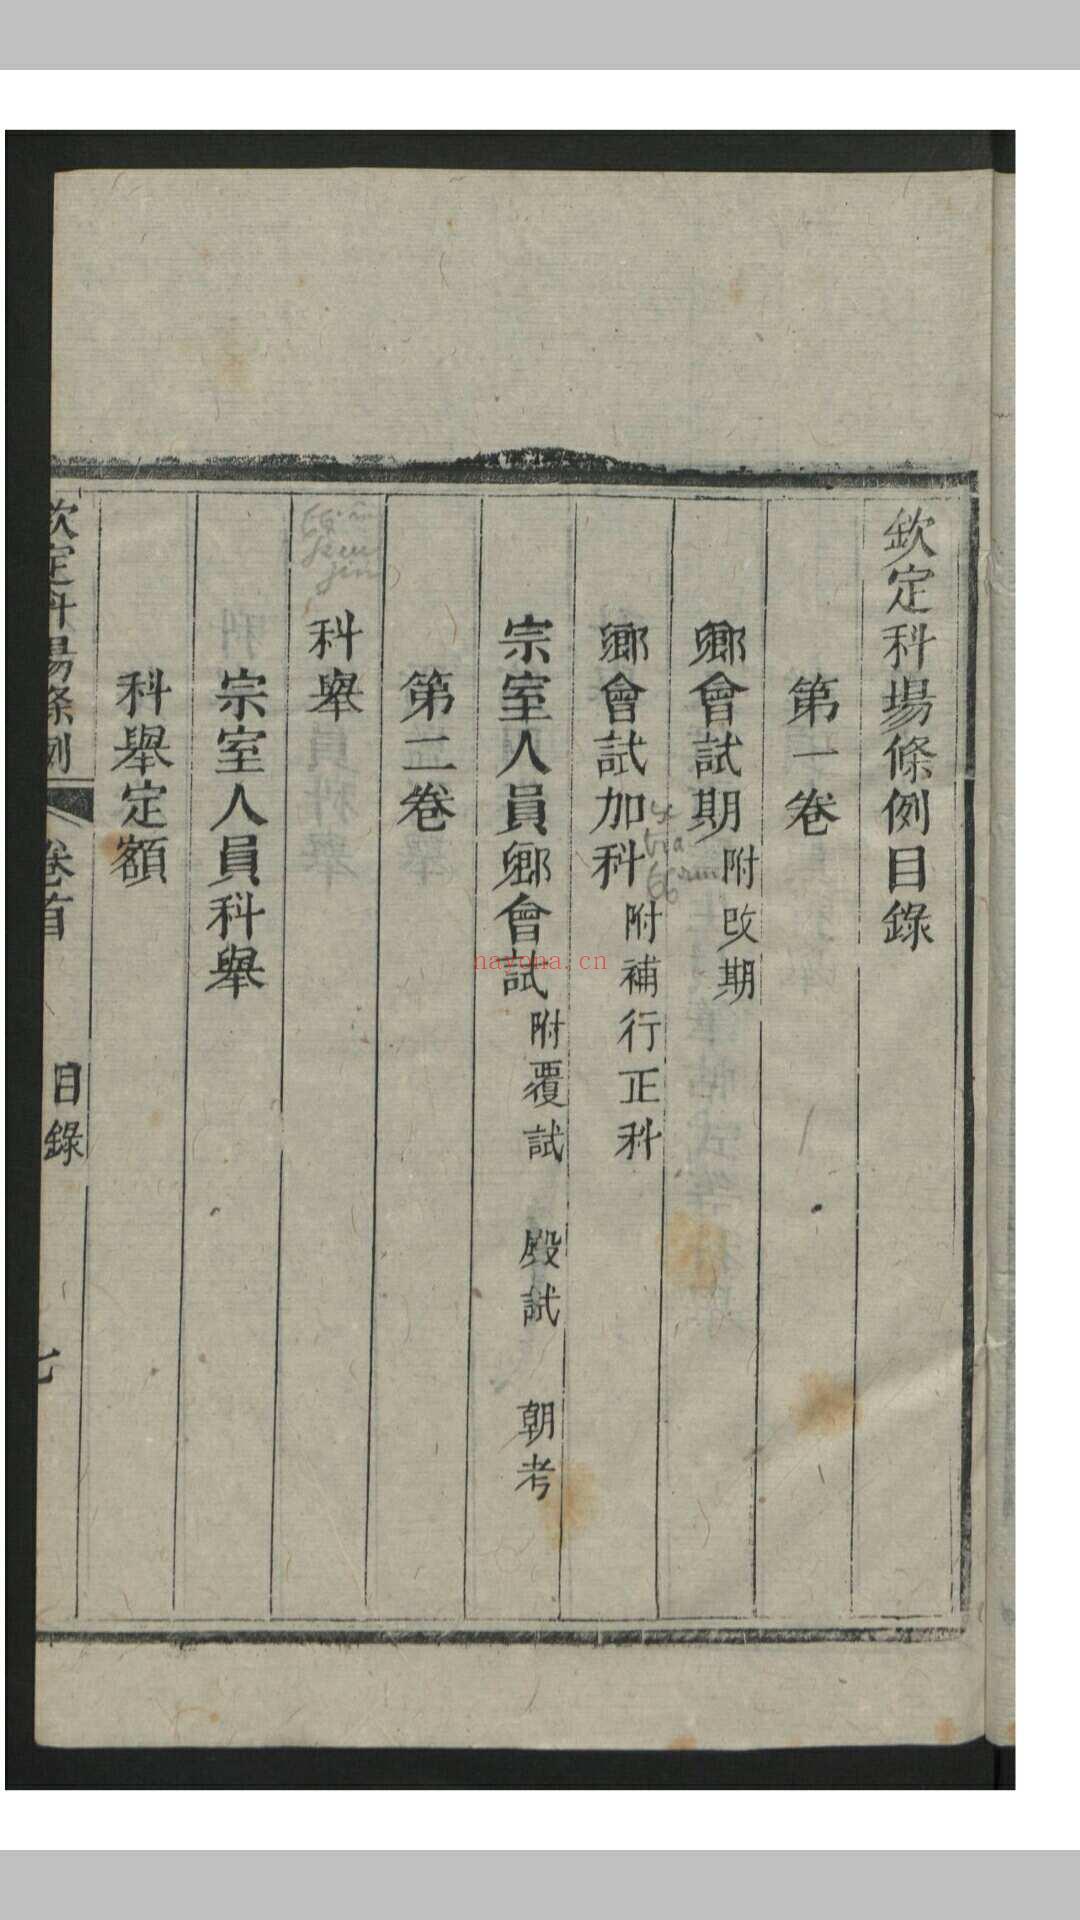 欽定科場條例目錄
第一卷
鄉會試期附改期
鄉會試加科附補行正科
宗室人員鄉會試附覆試 殿試 朝考
第二卷
科舉
宗室人員科舉
科舉定額
欽定科場條例 卷首 目錄 七
nayona.cn